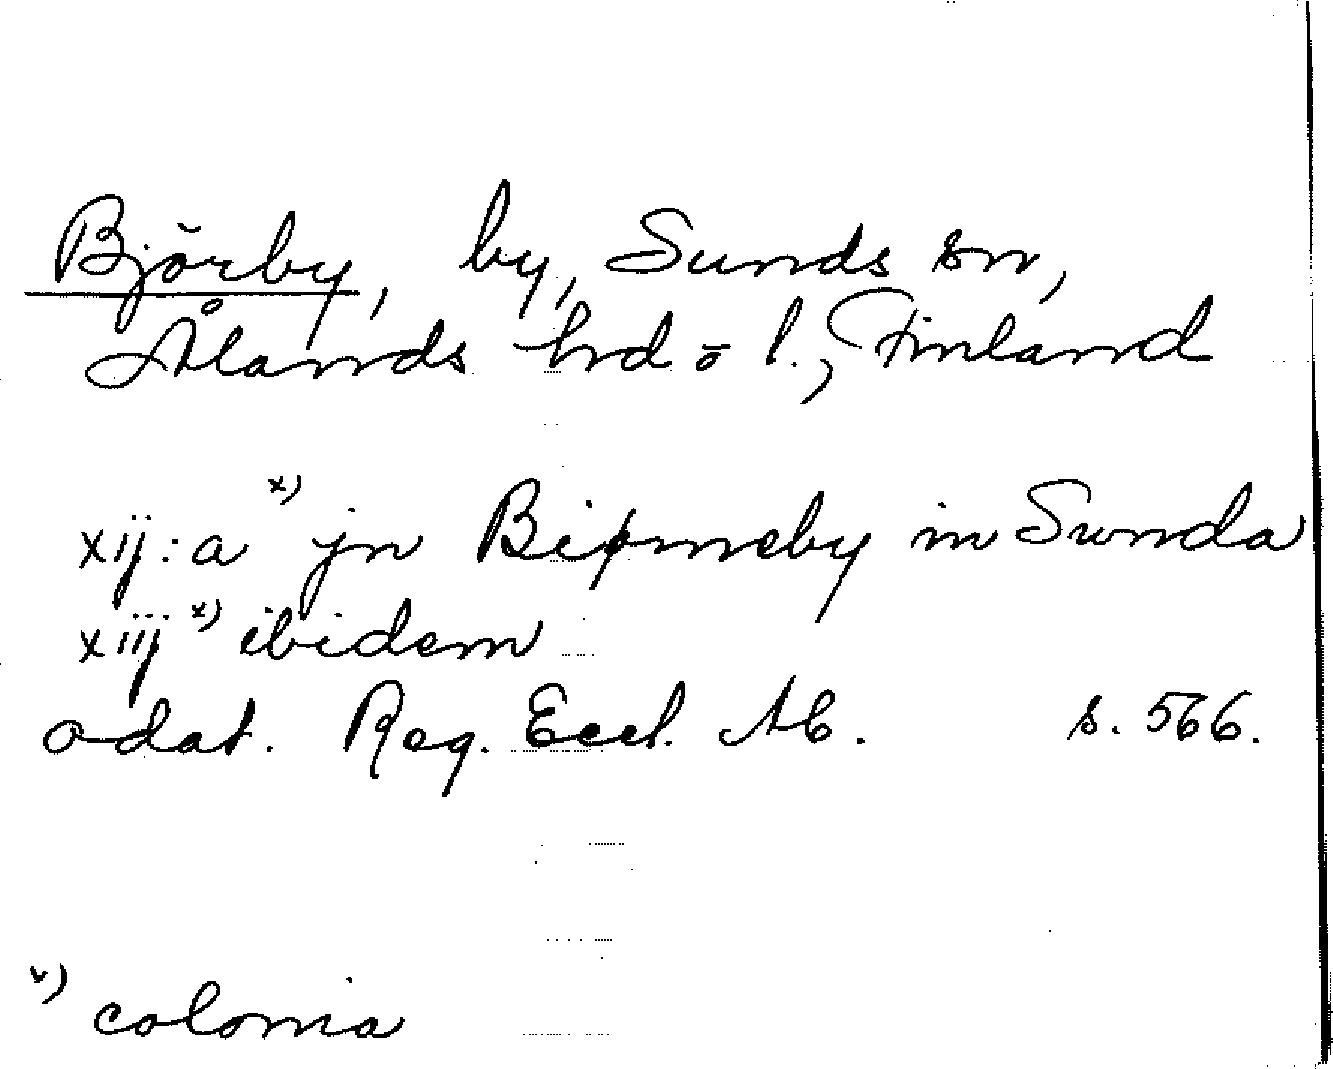 Björby, by, Sunds sn,
Ålands hrd o l., Finland
xij:a x) jn Biørneby in Sunda
xiij x) ibidem
odat. Reg. Eccl. Ab. s. 566.
x) colonia